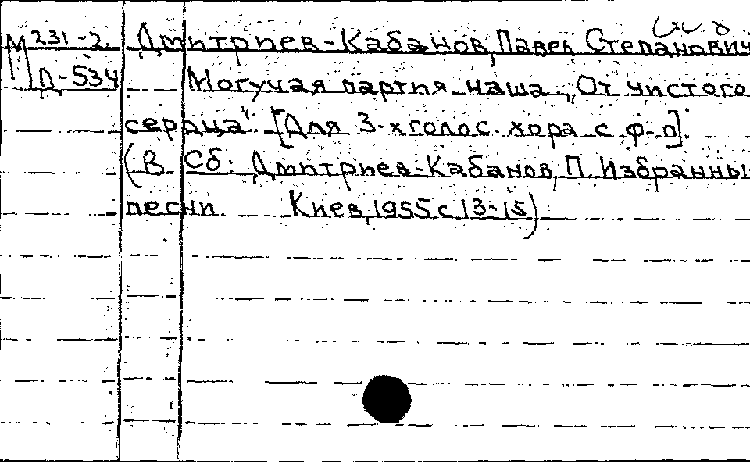 М 231-2. Дмитриев-Кабанов, Павел Степанович
Д-534 Могучая партия наша „От чистого
сердца". [Для 3-хголос. хора с ф-п].
(В сб: Дмитриев-Кабанов, П. Избранны
песни Киев, 1955 с 13-15)